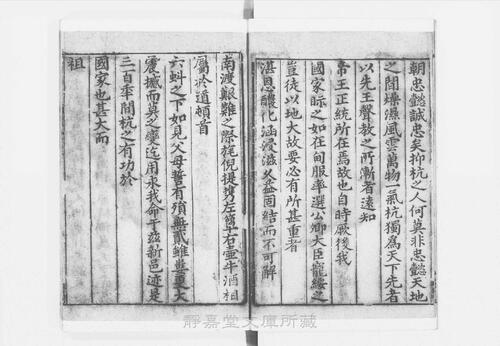 朝忠懿誠忠矣抑杭之人何莫非忠懿天地
之間燥濕風雲萬物一氣杭獨為天下先者
以先王聲教之所漸者遠知
帝王正統所在焉故也自時厥後我
國家眎之如在甸服率選公卿大臣寵綏之
豈徒以地大故要必有所甚重者
湛恩醲化涵浸滋久益固結而不可解
南渡艱難之際旄倪援攜左簞右壺牛酒相
屬於道頓首
六蚪之下如見父母誓有殞無貳雖
震撼而莫之變迄用永我命于茲新邑迹是
三百年間杭之有功於
國家也甚大而
祖
靜嘉堂文庫所藏